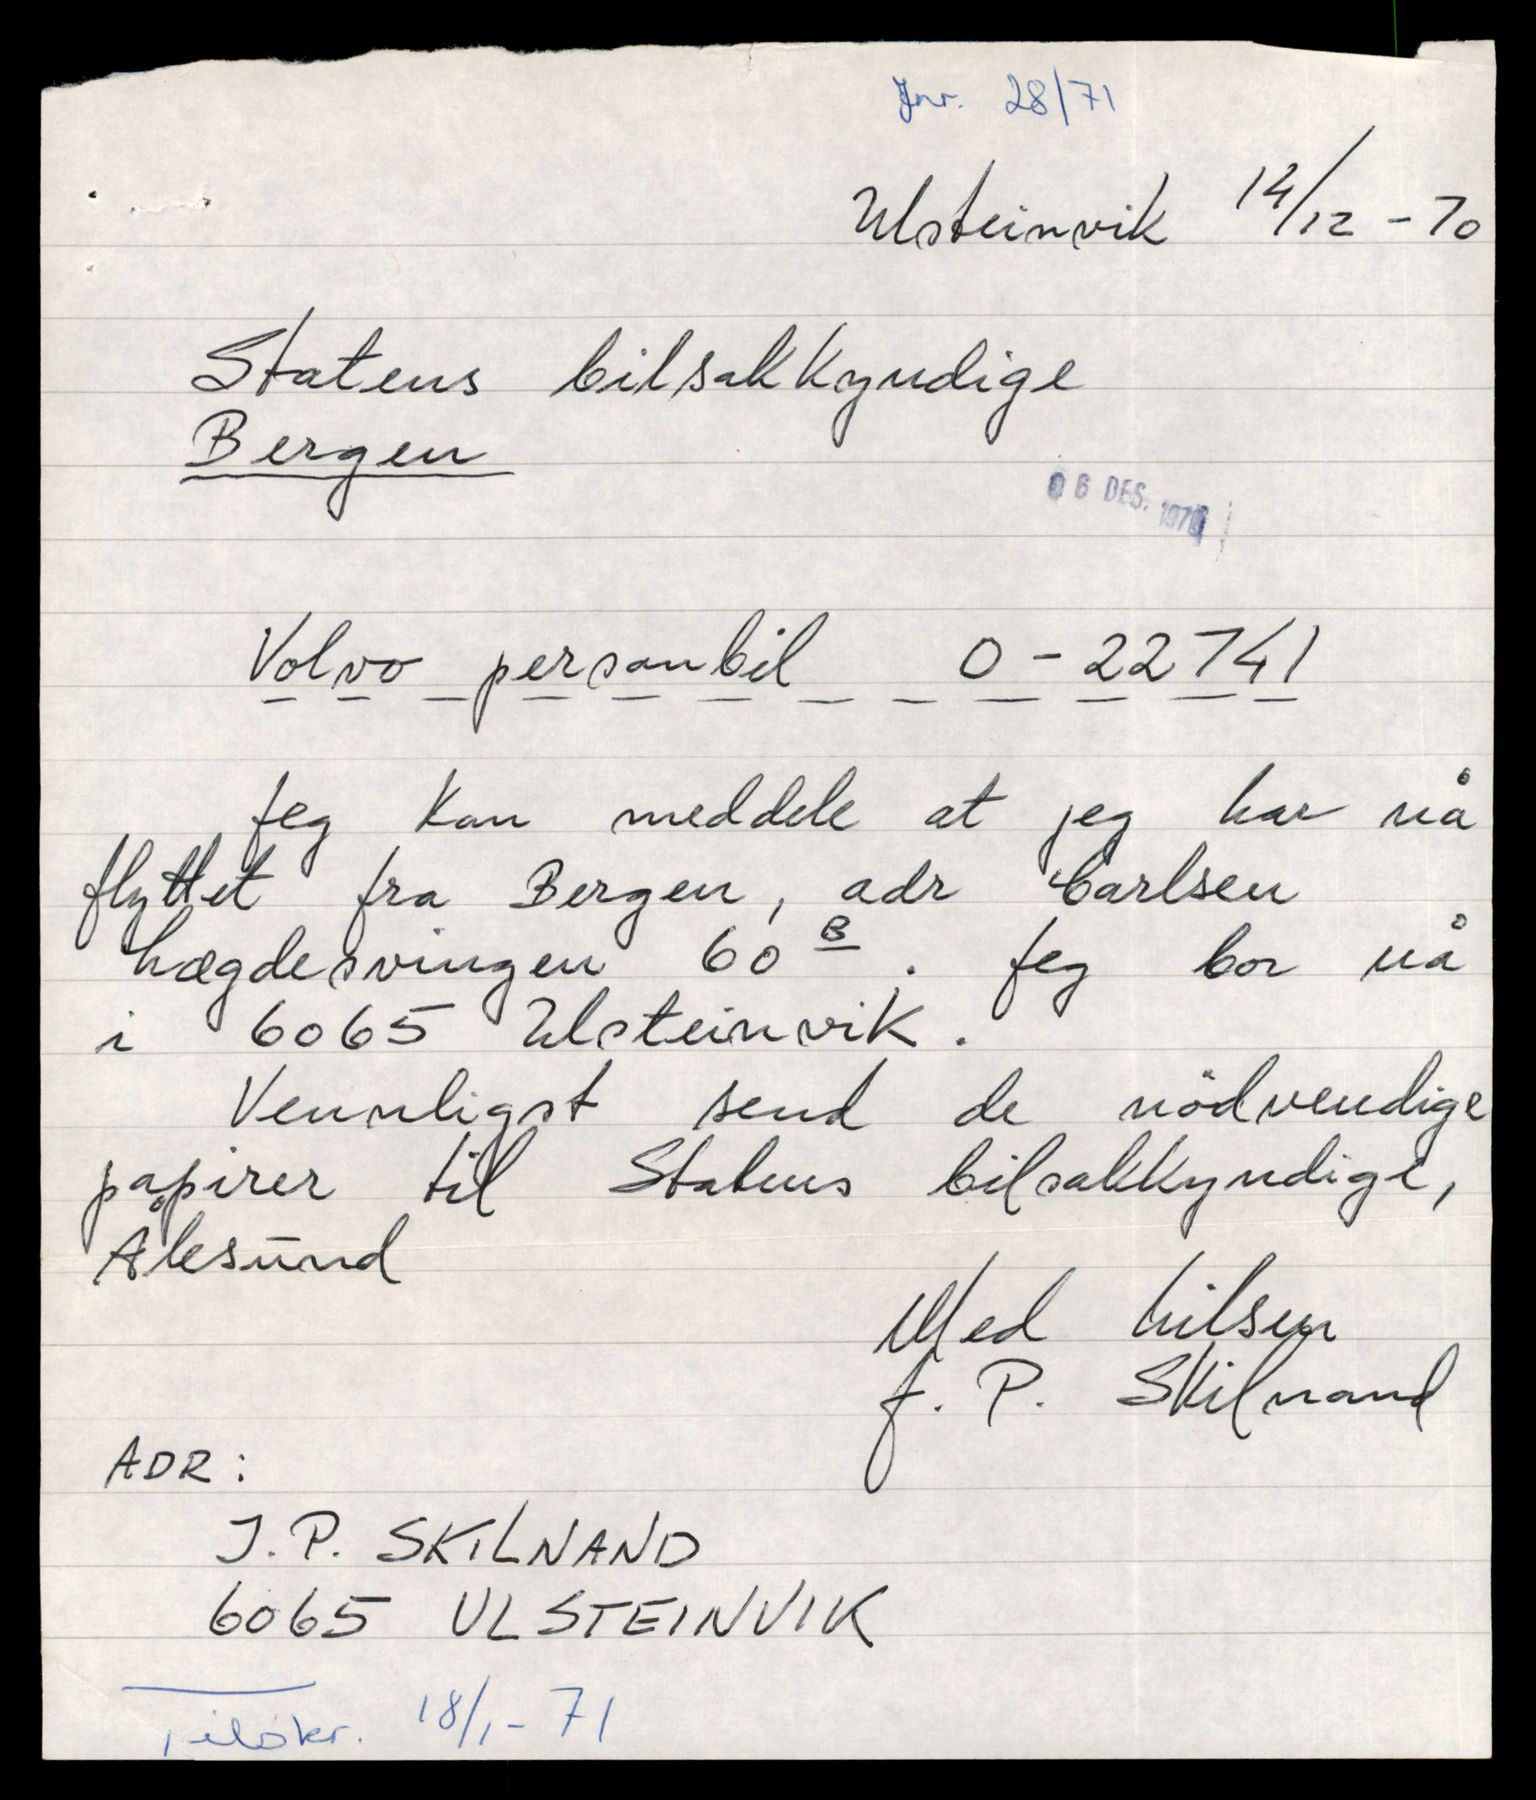 Jnr. 28/71
Ulsteinvik 14/12 - 70
Statens bilsakkyndige
Bergen
6 DES. 1970
Volvo personbil O - 22741
Jeg kan meddele at jeg har nå
flyttet fra Bergen, adr Carlsen
hægdesvingen 60 B. Jeg bor nå
i 6065 Ulsteinvik.
Vennligst send de nödvendige
papirer til Statens bilsakkyndige,
Ålesund
Med hilsen
J. P. Skilnand
ADR:
J. P. SKILNAND
6065 ULSTEINVIK
Tilskr. 18/1 - 71